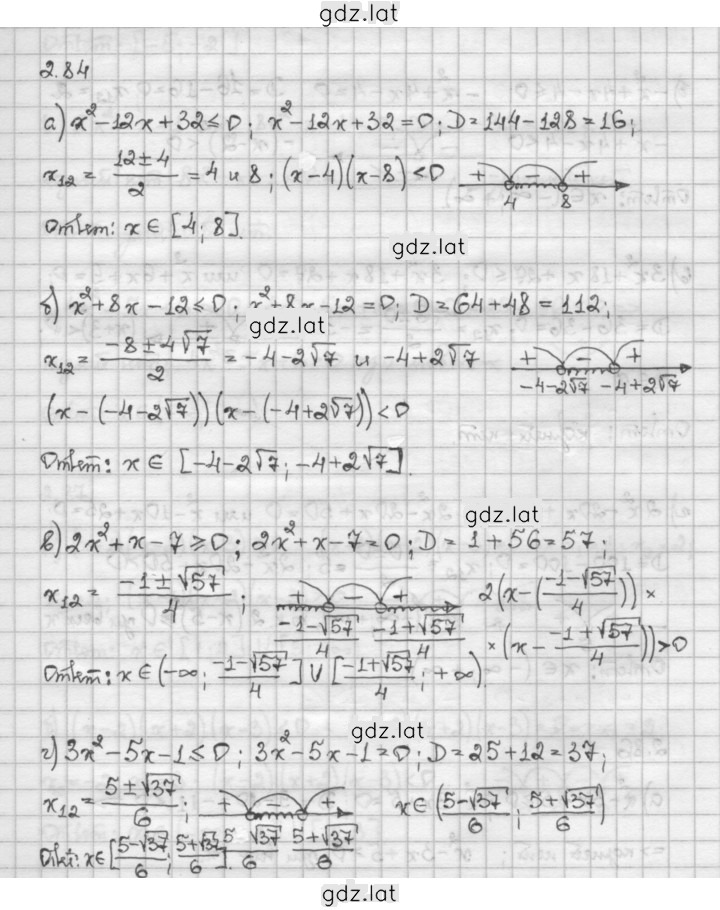 gdz.lat
2.84
а) x²-12x+32≤0; x²-12x+32=0; D=144-128=16;
x₁₂= (12±4)/2 = 4 и 8; (x-4)(x-8)<0 + - + 4 8
Ответ: x∈[4; 8].
gdz.lat
б) x²+8x-12≤0; x²+8x-12=0; D=64+48=112;
gdz.lat
x₁₂= (-8±4√7)/2 = -4-2√7 и -4+2√7 + - + -4-2√7 -4+2√7
(x-(-4-2√7))(x-(-4+2√7))<0
Ответ: x∈ [-4-2√7; -4+2√7].
gdz.lat
в) 2x²+x-7≥0; 2x²+x-7=0; D=1+56=57;
x₁₂= (-1±√57)/4; + - + (-1-√57)/4 (-1+√57)/4 2(x-((-1-√57)/4))×
×(x-(-1+√57)/4))>0
Ответ: x∈(-∞; (-1-√57)/4]∪[(-1+√57)/4; +∞).
gdz.lat
г) 3x²-5x-1≤0; 3x²-5x-1=0; D=25+12=37;
x₁₂= (5±√37)/6; + - + x∈((5-√37)/6; (5+√37)/6)
Отв: x∈[(5-√37)/6; (5+√37)/6]. (5-√37)/6 (5+√37)/6
gdz.lat